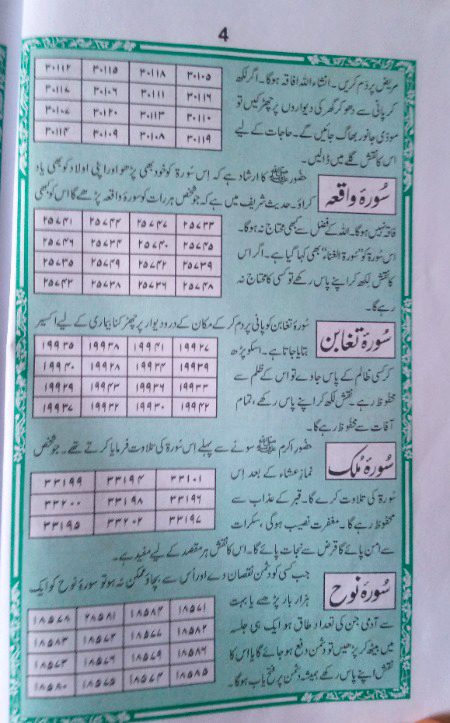 4
مریض پر دم کریں۔ انشاء اللہ افاقہ ہوگا۔ اگر لکھ
کر پانی سے دھو کر گھر کی دیواروں پر چھڑکیں تو
موذی جانور بھاگ جائیں گے۔ حاجات کے لیے
اس کا نقش گلے میں ڈالیں۔
۳۰۱۱۲ ۳۰۱۱۵ ۳۰۱۱۸ ۳۰۱۰۵
۳۰۱۱۷ ۳۰۱۰۶ ۳۰۱۱۱ ۳۰۱۱۶
۳۰۱۰۷ ۳۰۱۲۰ ۳۰۱۱۳ ۳۰۱۱۰
۳۰۱۱۴ ۳۰۱۰۹ ۳۰۱۰۸ ۳۰۱۱۹
سُورۂ واقعہ
حضور ﷺ کا ارشاد ہے کہ اِس سُورۃ کو خود بھی پڑھو اور اپنی اولاد کو بھی یاد
کراؤ۔ حدیث شریف میں ہے کہ جو شخص ہر رات کو سورۂ واقعہ پڑھے گا اس کو کبھی
فاقہ نہیں ہوگا۔ اللہ کے فضل سے کبھی محتاج نہ ہوگا۔
اس سُورۃ کو "سُورۃ الغناء" بھی کہا گیا ہے۔ اگر اس
کا نقش لکھ کر اپنے پاس رکھے تو کسی کا محتاج نہ
رہے گا۔
۲۵۷۴۱ ۲۵۷۴۴ ۲۵۷۴۷ ۲۵۷۳۴
۲۵۷۴۶ ۲۵۷۳۵ ۲۵۷۴۰ ۲۵۷۴۵
۲۵۷۳۶ ۲۵۷۴۹ ۲۵۷۴۲ ۲۵۷۳۹
۲۵۷۴۳ ۲۵۷۳۸ ۲۵۷۳۷ ۲۵۷۴۸
سُورۂ تغابن
سُورۂ تغابن کو پانی پر دم کر کے مکان کے در و دیوار پر چھڑکنا بیماری کے لیے اکسیر
بتایا جاتا ہے۔ اسکو پڑھ
کر کسی ظالم کے پاس جاوے تو اس کے ظلم سے
محفوظ رہے۔ نقش لکھ کر اپنے پاس رکھے، تمام
آفات سے محفوظ رہے گا۔
۱۹۹۳۵ ۱۹۹۳۸ ۱۹۹۴۱ ۱۹۹۲۷
۱۹۹۴۰ ۱۹۹۲۸ ۱۹۹۳۴ ۱۹۹۳۹
۱۹۹۲۹ ۱۹۹۴۳ ۱۹۹۳۶ ۱۹۹۳۳
۱۹۹۳۷ ۱۹۹۳۲ ۱۹۹۳۰ ۱۹۹۴۲
سُورۂ مُلک
حضور اکرم ﷺ سونے سے پہلے اس سُورۃ کی تلاوت فرمایا کرتے تھے۔ جو شخص
نمازِ عشاء کے بعد اِس
سُورۃ کی تلاوت کرے گا۔ قبر کے عذاب سے
محفوظ رہے گا۔ مغفرت نصیب ہوگی، سکرات
سے امن پائے گا قرض سے نجات پائے گا۔ اس کا نقش ہر مقصد کے لیے مفید ہے۔
۳۳۱۹۹ ۳۳۱۹۴ ۳۳۲۰۱
۳۳۲۰۰ ۳۳۱۹۸ ۳۳۱۹۶
۳۳۱۹۵ ۳۳۲۰۲ ۳۳۱۹۷
سُورۂ نوح
جب کسی کو دشمن نقصان دے اور اُس سے بچاؤ ممکن نہ ہو تو سورۂ نوح کو ایک
ہزار بار پڑھے یا بہت
سے آدمی جن کی تعداد طاق ہو ایک ہی جلسہ
میں بیٹھ کر پڑھیں تو دشمن دفع ہو جائے گا یا اس کا
نقش اپنے پاس رکھے ہمیشہ دشمن پر فتح یاب ہوگا۔
۱۸۵۷۸ ۱۸۵۸۱ ۱۸۵۸۴ ۱۸۵۷۱
۱۸۵۸۳ ۱۸۵۷۲ ۱۸۵۷۷ ۱۸۵۸۲
۱۸۵۷۳ ۱۸۵۸۶ ۱۸۵۷۹ ۱۸۵۷۶
۱۸۵۸۰ ۱۸۵۷۵ ۱۸۵۷۴ ۱۸۵۸۵